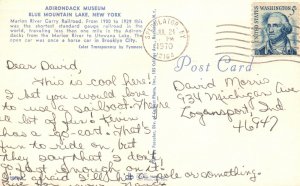 ADIRONDACK MUSEUM
BLUE MOUNTAIN LAKE, NEW YORK
Marion River Carry Railroad. From 1900 to 1929 this
was the shortest standard gauge railroad in the
world, traveling less than one mile in the Adiron-
dacks from the Marion River to Utowana Lake. The
open car was once a horse car in Brooklyn City.
Color Transparency by
JUL 24
PM
1972
UNITED STATES
5 CENTS
WASHINGTON
Post Card
Dear David,
This is cool here!
I bet you would love
to use a sailboat. They're
a lot of fun. Kevin
has a go-cart. That's
fun to ride on, but
they say that I don't
go fast enough on it!
I'm afraid I'll hit a pole or something.
David Morris
934 Michigan Ave
Logansport, Ind
46947